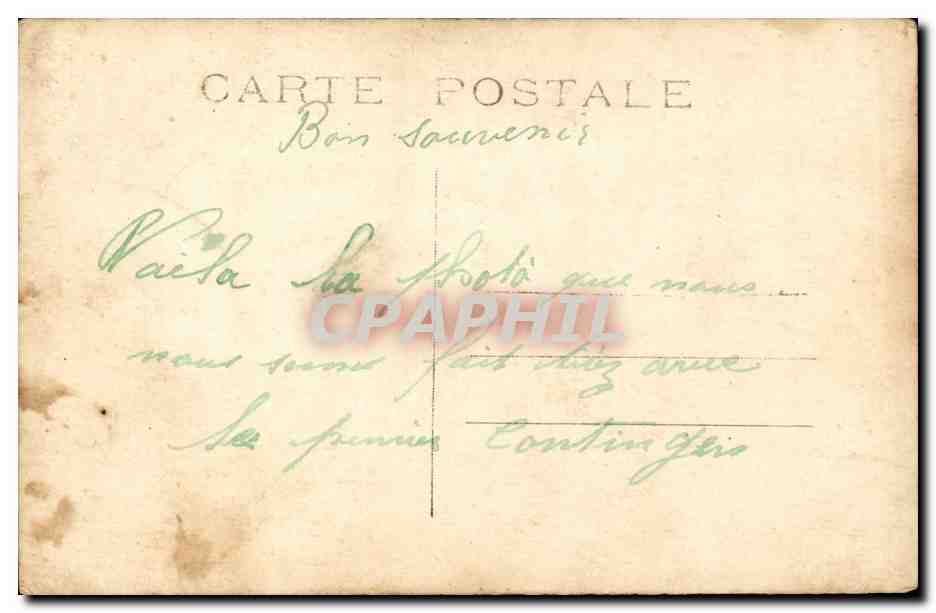 CARTE POSTALE
Bon souvenir
Voila la photo que nous
nous somme fait tirez avec
le premier Contingens
CPAPHIL